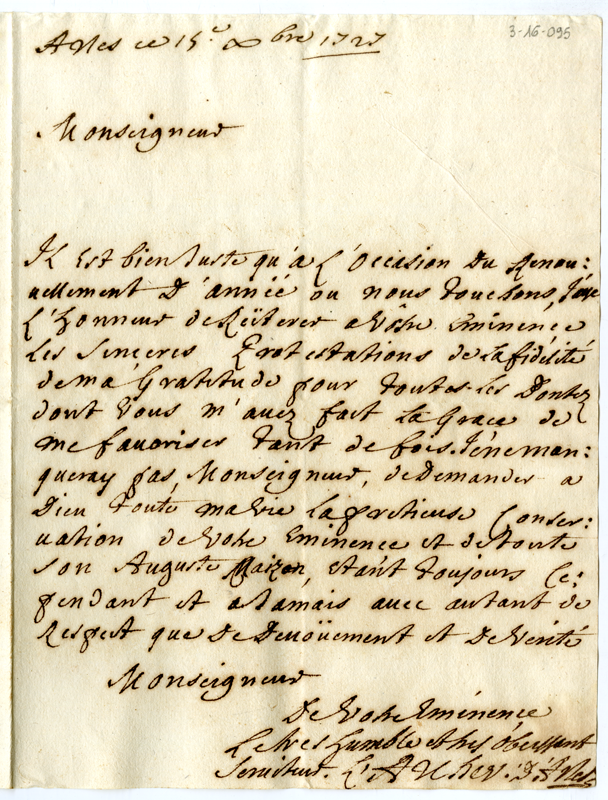 3-16-095
Arles ce 15.e Xbre 1727
Monseigneur
Il Est bien Juste qu'a L'Occasion Du Renou:
uellement D'année ou nous touchons, J'aye
L'honneur de Reïterer a Vôtre Eminence
Les Sinceres Protestations de La fidélité
de ma Gratitude pour toutes Les Bontez
dont Vous m'auez fait La Grace de
me fauoriser tant de fois. Je ne man:
queray pas, Monseigneur, de Demander a
Dieu toute ma Vie La pretieuse Conser:
uation de Votre Eminence et de toute
son Auguste Maizon, etant toujours Ce:
pendant et a Jamais auec autant de
Respect que De Deuoüement et De Vérité
Monseigneur
De Votre Eminence
Le tres humble et tres obeissant
Seruiteur. L'Archev. D'Arles